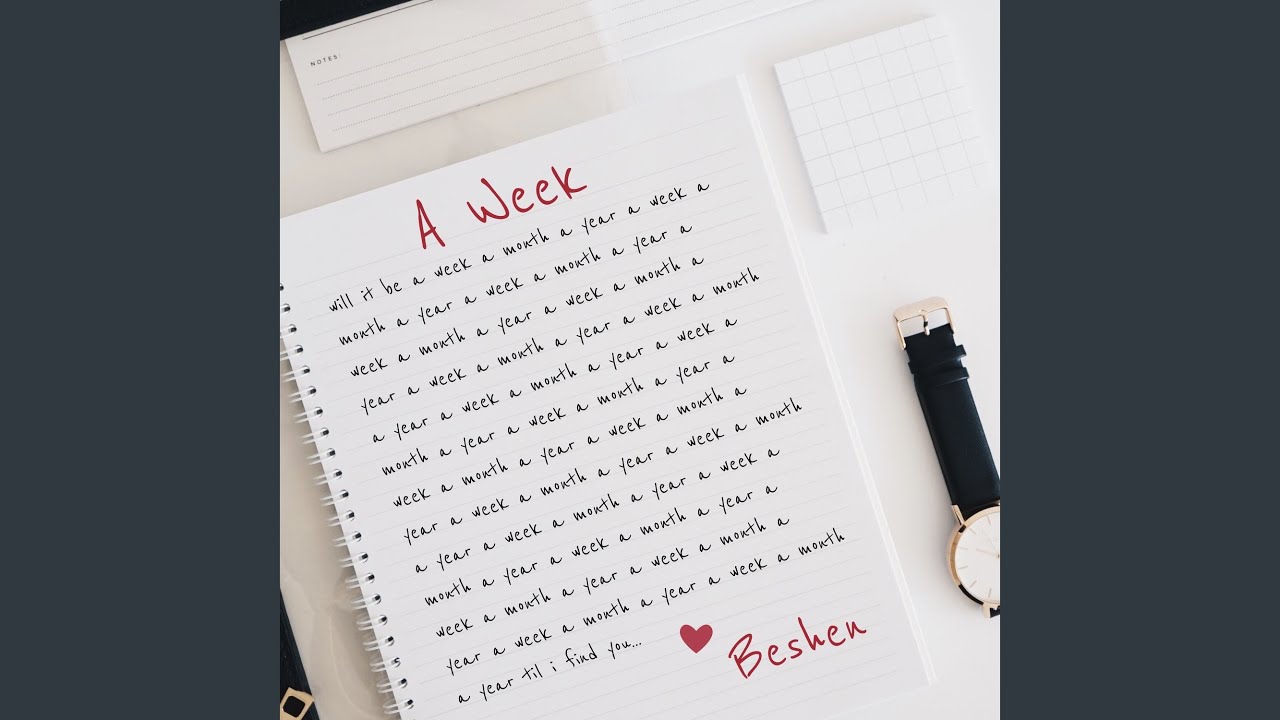 NOTES:
A Week
will it be a week a month a year a week a
month a year a week a month a year a
week a month a year a week a month a
year a week a month a year a week a month
a year a week a month a year a week a
month a year a week a month a year a
week a month a year a week a month a
year a week a month a year a week a month
a year a week a month a year a week a
month a year a week a month a year a
week a month a year a week a month a
year a week a month a year a week a month
a year til i find you...
Beshen